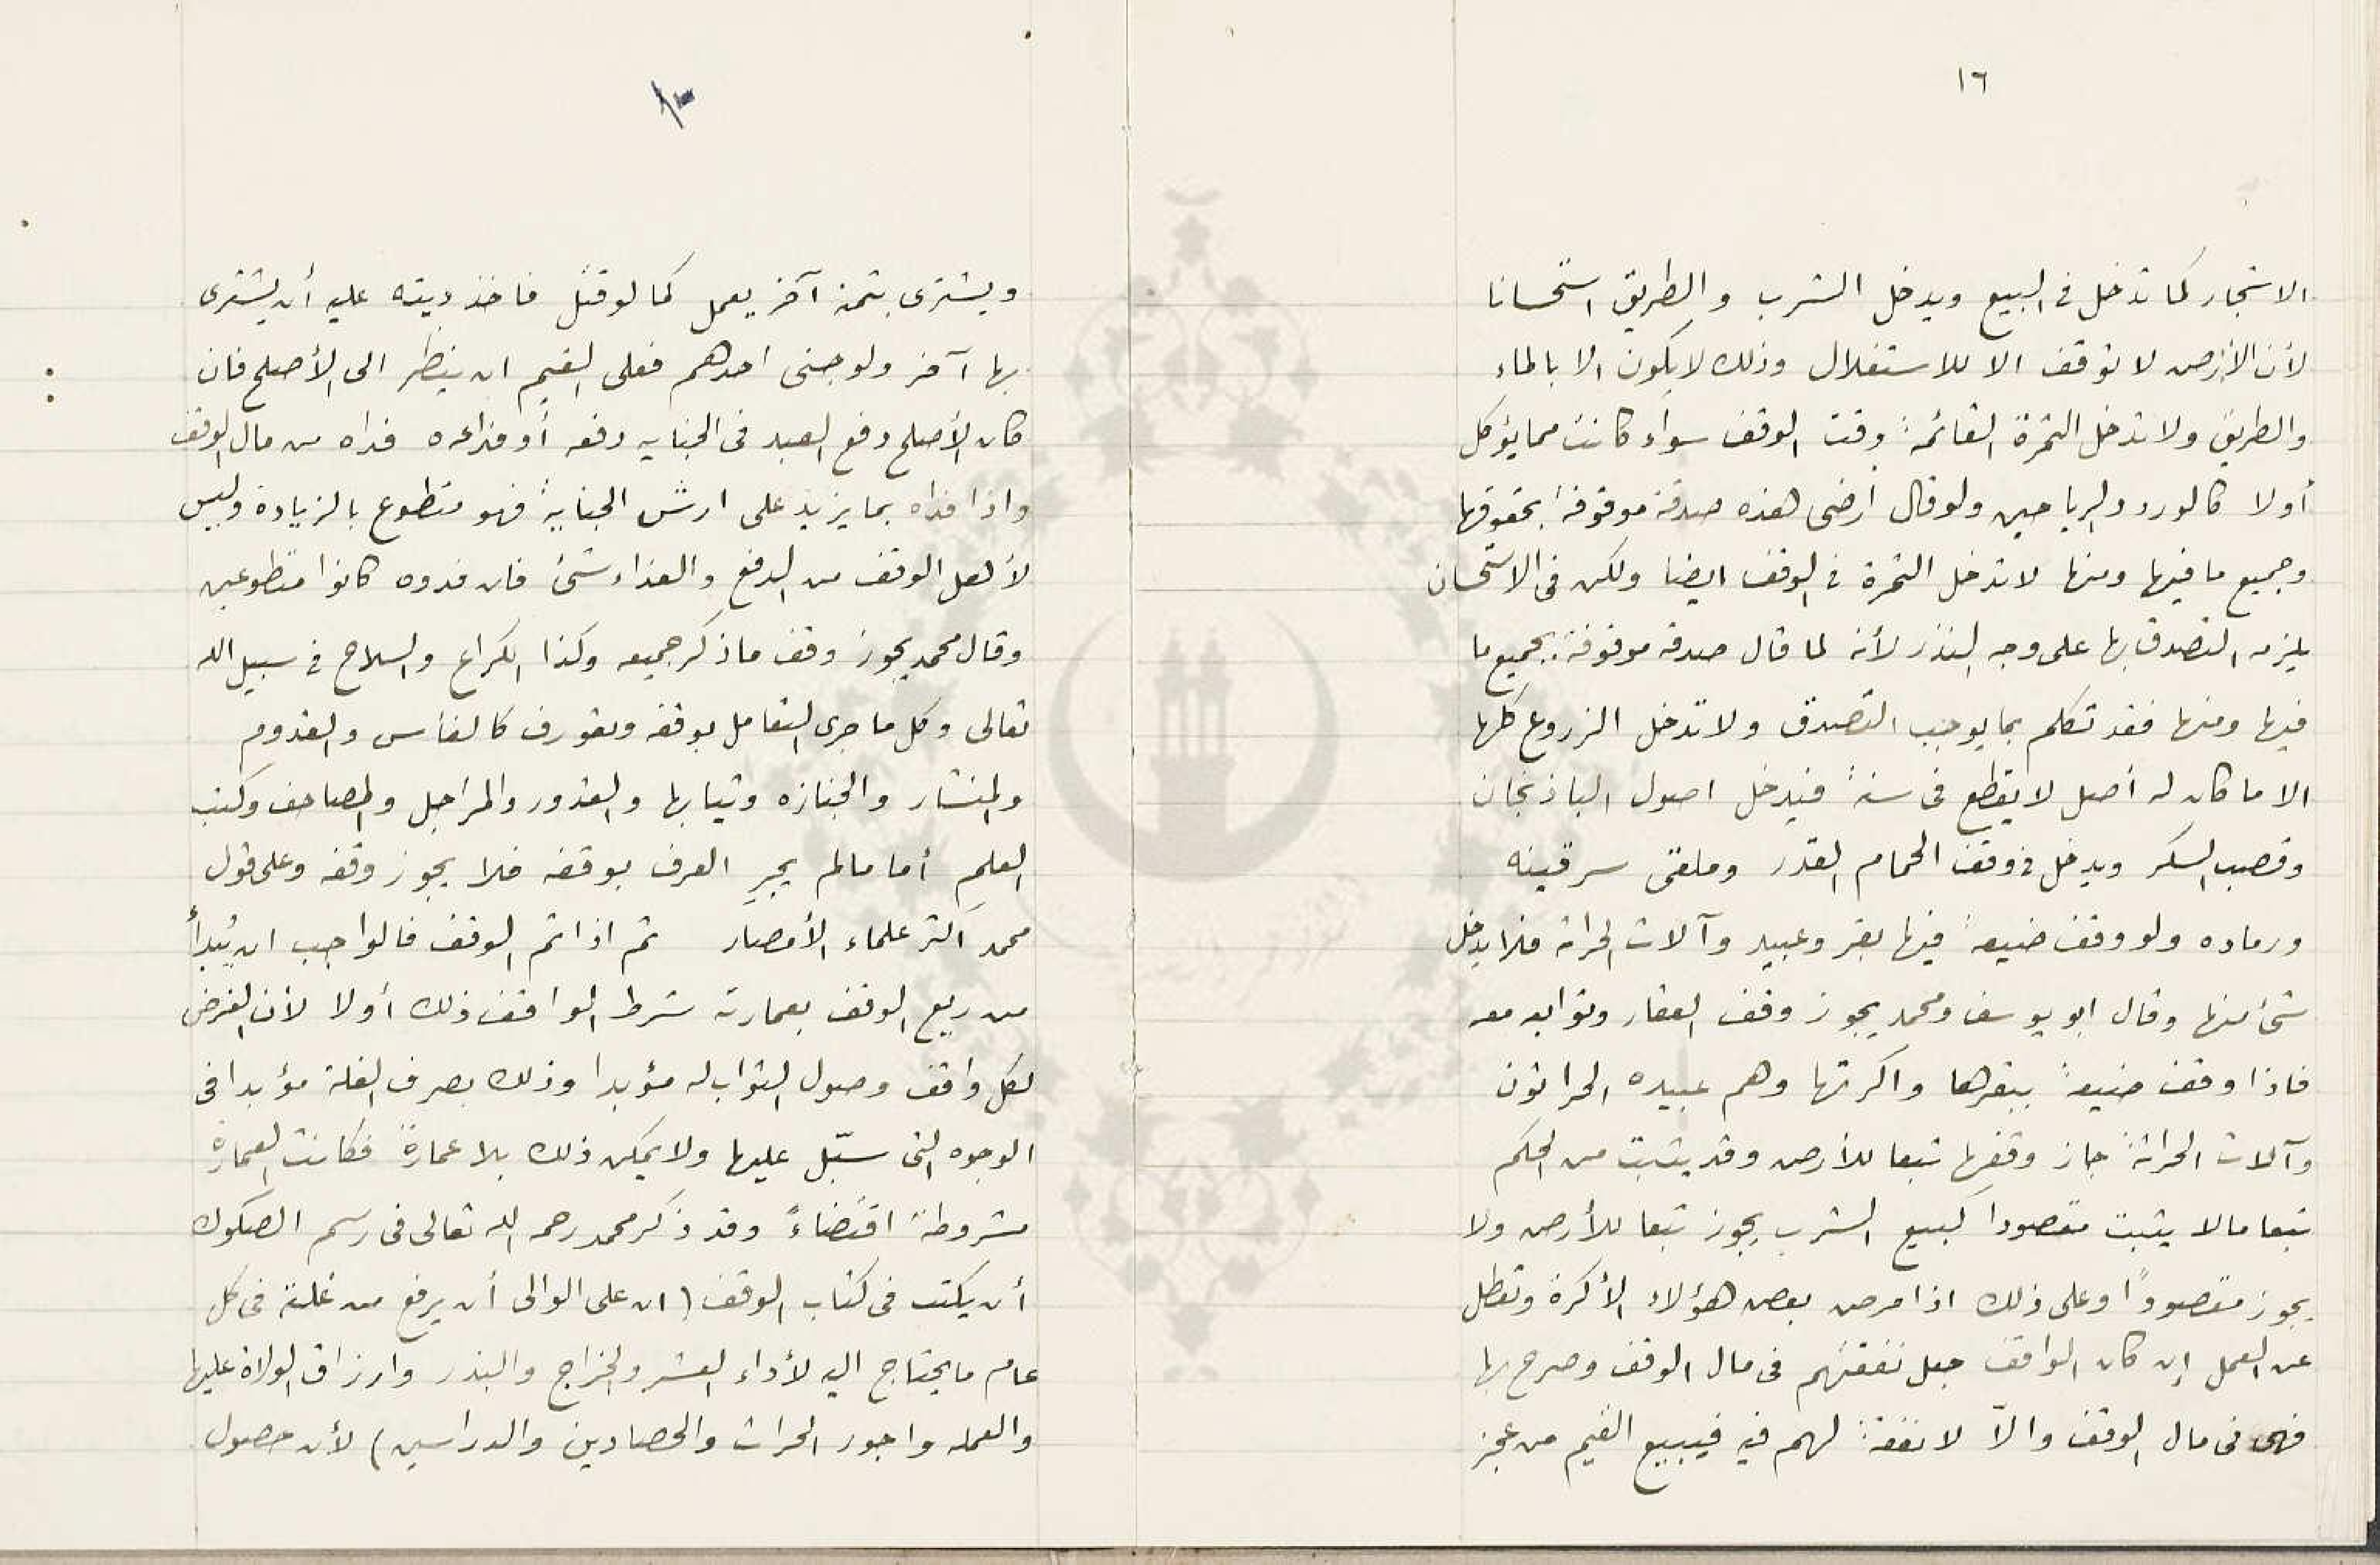 ١٦
الاشجار كما تدخل فى البيع ويدخل الشرب والطريق استحسانا
لأن الأرض لا توقف الا للاستغلال وذلك لا يكون الا بالماء
والطريق ولا تدخل الثمرة القائمة وقت الوقف سواء كانت مما يؤكل
أولا كالورد والرياحين ولو قال أرضى هذه صدقة موقوفة بحقوقها
وجميع ما فيها ومنها لا تدخل الثمرة فى الوقف ايضا ولكن فى الاستحسان
يلزمه التصدق بها على وجه النذر لأنه لما قال صدقة موقوفة بجميع ما
فيها ومنها فقد تكلم بما يوجب التصدق ولا تدخل الزروع كلها
الا ما كان له أصل لا يقطع فى سنة فيدخل اصول الباذنجان
وقصب السكر ويدخل فى وقف الحمام القدر وملقى سرقينه
ورماده ولو وقف ضيعة فيها بقر وعبيد وآلات الحراثة فلا يدخل
شئ منها وقال ابو يوسف ومحمد يجوز وقف العقار وتوابعه معه
فاذا وقف ضيعة ببقرها واكرتها وهم عبيده الحراثون
وآلات الحراثة جاز وقفها تبعا للأرض وقد يثبت من الحكم
تبعا مالا يثبت مقصودا كبيع الشرب يجوز تبعا للأرض ولا
يجوز مقصودًا وعلى ذلك اذا مرض بعض هؤلاء الأكرة وتعطل
عن العمل إن كان الواقف جعل نفقتهم فى مال الوقف وصرح بها
فهى فى مال الوقف والاّ لا نفقة لهم فيه فيبيع القيم من عجز
ويشترى بثمنه آخر يعمل كما لو قتل فاخذ ديته عليه أن يشترى
بها آخر ولو جنى احدهم فعلى القيم ان ينظر الى الأصلح فان
كان الأصلح دفع العبد فى الجنايه دفعه أو فداءه فداه من مال الوقف
واذا فداه بما يزيد على ارش الجناية فهو متطوع بالزيادة وليس
لأهل الوقف من الدفع والفداء شئ فان فدوه كانوا متطوعين
وقال محمد يجوز وقف ما ذكر جميعه وكذا الكراع والسلاح فى سبيل الله
تعالى وكل ما جرى التعامل بوقفه وتعورف كالفأس والقدوم
والمنشار والجنازه وثيابها والقدور والمراجل والمصاحف وكتب
العلم أما مالم يجرِ العرف بوقفه فلا يجوز وقفه وعلى قول
محمد اكثر علماء الأمصار ثم اذا تم الوقف فالواجب ان يُبدأ
من ريع الوقف بعمارته شرط الواقف ذلك أولا لأن الغرض
لكل واقف وصول الثواب له مؤبدا وذلك بصرف الغلة مؤبدا فى
الوجوه التى سبّل عليها ولا يمكن ذلك بلا عمارة فكانت العمارة
مشروطة اقتضاءً وقد ذكر محمد رحمه الله تعالى فى رسم الصكوك
أن يكتب فى كتاب الوقف (ان على الوالى أن يرفع من غلته فى كل
عام ما يحتاج اليه لأداء العشر والخراج والبذر وارزاق الولاة عليها
والعمله واجور الحراث والحصادين والدراسين) لأن حصول